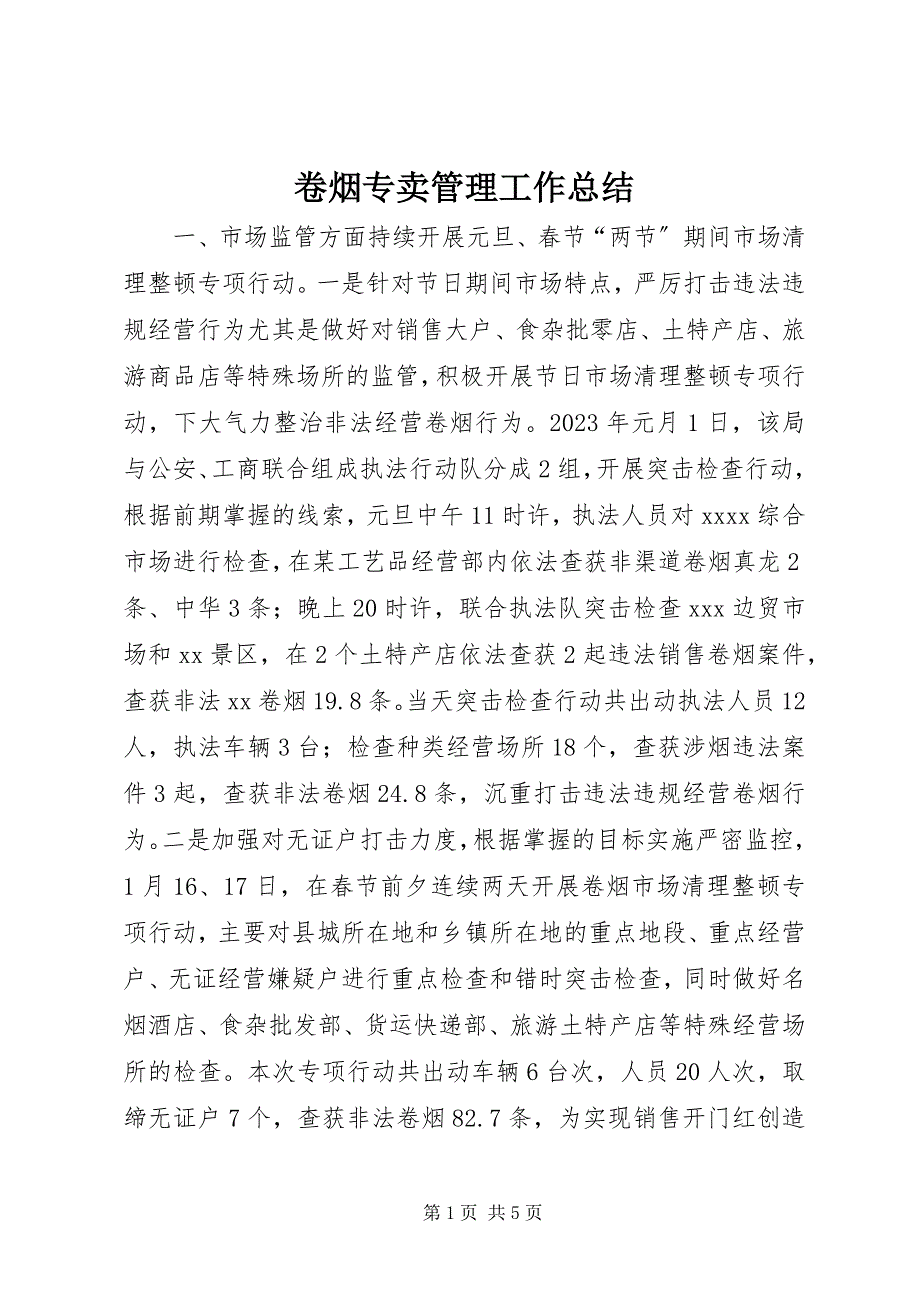 卷烟专卖管理工作总结
一、市场监管方面持续开展元旦、春节“两节〞期间市场清
理整顿专项行动。一是针对节日期间市场特点，严厉打击违法违
规经营行为尤其是做好对销售大户、食杂批零店、土特产店、旅
游商品店等特殊场所的监管，积极开展节日市场清理整顿专项行
动，下大气力整治非法经营卷烟行为。2023 年元月 1 日，该局
与公安、工商联合组成执法行动队分成 2 组，开展突击检查行动，
根据前期掌握的线索，元旦中午 11 时许，执法人员对 xxxx 综合
市场进行检查，在某工艺品经营部内依法查获非渠道卷烟真龙 2
条、中华 3 条；晚上 20 时许，联合执法队突击检查 xxx 边贸市
场和 xx 景区，在 2 个土特产店依法查获 2 起违法销售卷烟案件，
查获非法 xx 卷烟 19.8 条。当天突击检查行动共出动执法人员 12
人，执法车辆 3 台；检查种类经营场所 18 个，查获涉烟违法案
件 3 起，查获非法卷烟 24.8 条，沉重打击违法违规经营卷烟行
为。二是加强对无证户打击力度，根据掌握的目标实施严密监控，
1 月 16、17 日，在春节前夕连续两天开展卷烟市场清理整顿专
项行动，主要对县城所在地和乡镇所在地的重点地段、重点经营
户、无证经营嫌疑户进行重点检查和错时突击检查，同时做好名
烟酒店、食杂批发部、货运快递部、旅游土特产店等特殊经营场
所的检查。本次专项行动共出动车辆 6 台次，人员 20 人次，取
缔无证户 7 个，查获非法卷烟 82.7 条，为实现销售开门红创造
第 1 页 共 5 页